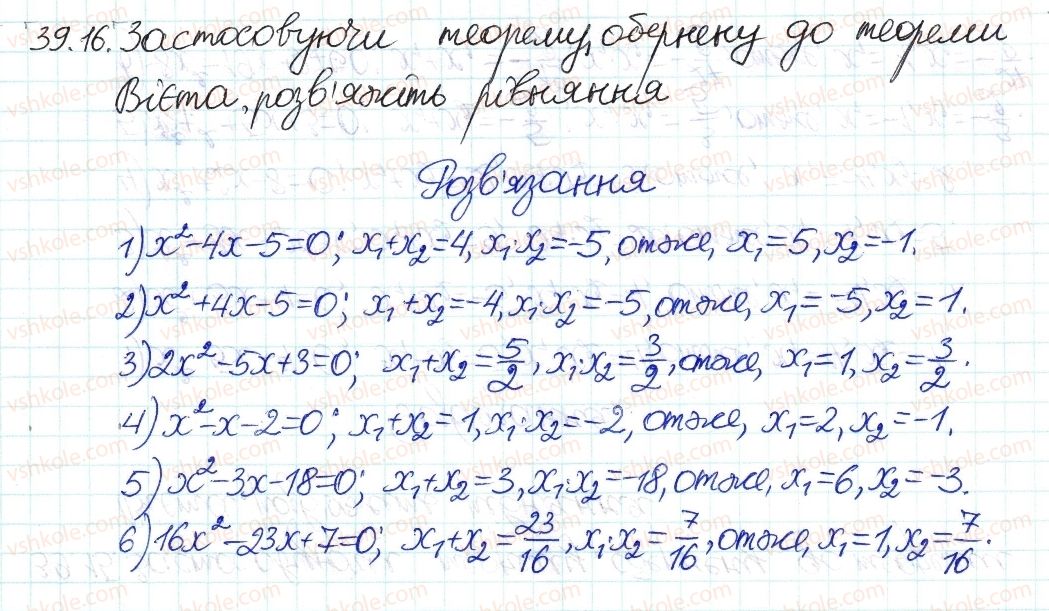 39.16. Застосовуючи теорему, обернену до теореми
Вієта, розв'яжіть рівняння
Розв'язання
1) x²-4x-5=0; x₁+x₂=4, x₁·x₂=-5, отже, x₁=5, x₂=-1.
2) x²+4x-5=0; x₁+x₂=-4, x₁·x₂=-5, отже, x₁=-5, x₂=1.
3) 2x²-5x+3=0; x₁+x₂=5/2, x₁·x₂=3/2, отже, x₁=1, x₂=3/2.
4) x²-x-2=0; x₁+x₂=1, x₁·x₂=-2, отже, x₁=2, x₂=-1.
5) x²-3x-18=0; x₁+x₂=3, x₁·x₂=-18, отже, x₁=6, x₂=-3.
6) 16x²-23x+7=0; x₁+x₂=23/16, x₁·x₂=7/16, отже, x₁=1, x₂=7/16.